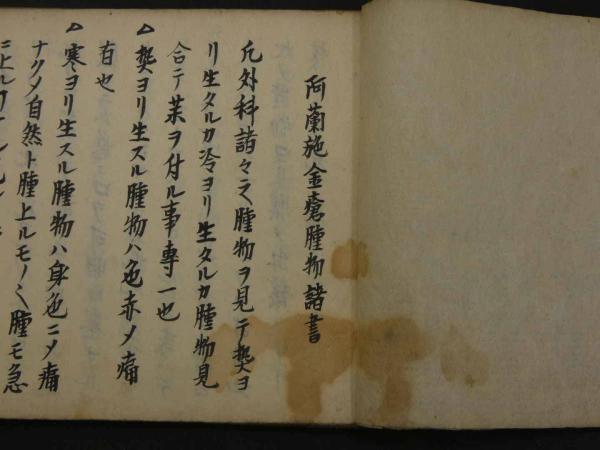 阿蘭施金瘡腫物諸書
凡外科諸々之腫物ヲ見テ熱ヨ
リ生タルカ冷ヨリ生タルカ腫物見
合テ薬ヲ付ル事專一也
△熱ヨリ生スル腫物ハ色赤メ痛
有也
△寒ヨリ生スル腫物ハ身色ニメ痛
ナクメ自然ト腫上ルモノ也腫モ急
ニ上ル